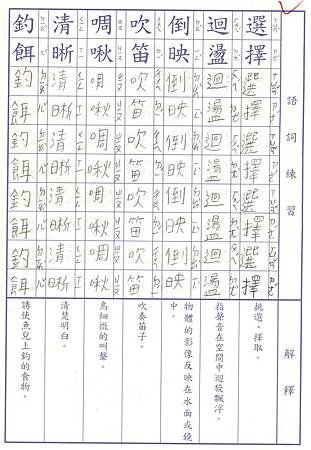 語詞練習
解釋
選擇
選擇選擇選擇選擇
挑選、擇取。
迴盪
迴盪迴盪迴盪迴盪
指聲音在空間中迴旋飄浮。
倒映
倒映倒映倒映倒映
物體的影像反映在水面或鏡
中。
吹笛
吹笛吹笛吹笛吹笛
吹奏笛子。
啁啾
啁啾啁啾啁啾啁啾
鳥細微的叫聲。
清晰
清晰清晰清晰清晰
清楚明白。
釣餌
釣餌釣餌釣餌釣餌
誘使魚兒上鉤的食物。